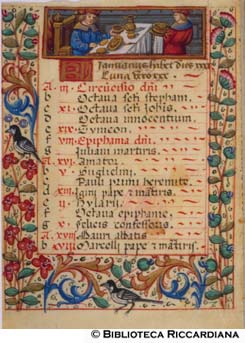 Januarius habet dies xxxi
Luna vero xxx.
A. iii Circuncisio dñi
b Octava scti stephani
c xi Octava scti johis
d Octava innocentium
e xix Symeon
f viii Epiphania dñi
g Juliani martiris
A. xvi Amatoi
b v Guglielmi
Pauli primi heremite
igini pape z matiris
e ii Hylarii
f Octava epiphanie
g x Felicis confessoris
A. xviii Mauri abatis
b xviii Marcelli pape z matiris
© BIBLIOTECA RICCARDIANA